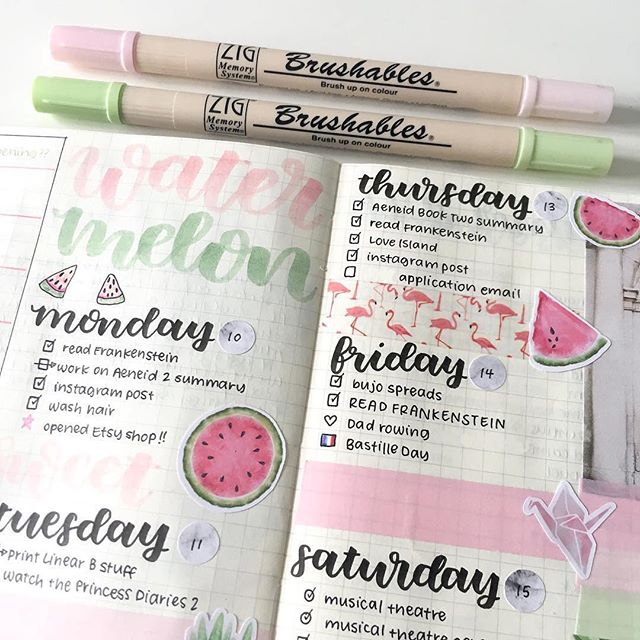 ZIG
Memory
System®
Brushables®
Brush up on colour
ZIG
Memory
System®
Brushables®
Brush up on colour
opening??
water
melon
monday 10
read Frankenstein
work on Aeneid 2 summary
instagram post
wash hair
opened Etsy shop!!
sweet
tuesday 11
print Linear B stuff
watch the Princess Diaries 2
thursday 13
Aeneid Book Two summary
read Frankenstein
Love Island
instagram post
application email
friday 14
bujo spreads
READ FRANKENSTEIN
Dad rowing
Bastille Day
saturday 15
musical theatre
musical theatre